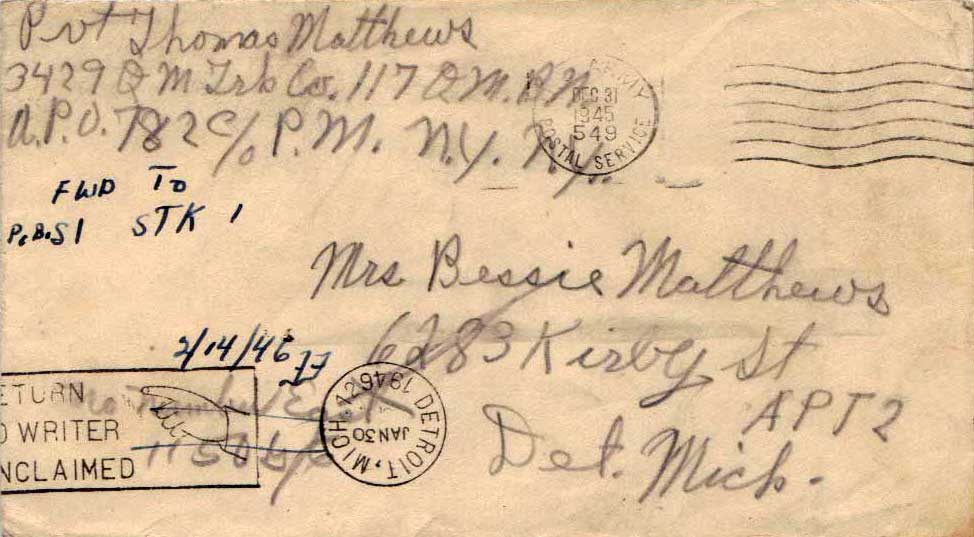 Pvt Thomas Matthews
3429 Q M Trk Co. 117 Q.M. B.N.
A.P.O. 782 C/o P.M. N.Y. N.Y.
ARMY
DEC 31
1945
549
POSTAL SERVICE
FWD To
P.B.S1 STK 1
Mrs Bessie Matthews
6283 Kirby St
APT 2
Det. Mich.
2/14/46
ETURN
O WRITER
NCLAIMED
No
DETROIT, MICH.
JAN 30
12
1946